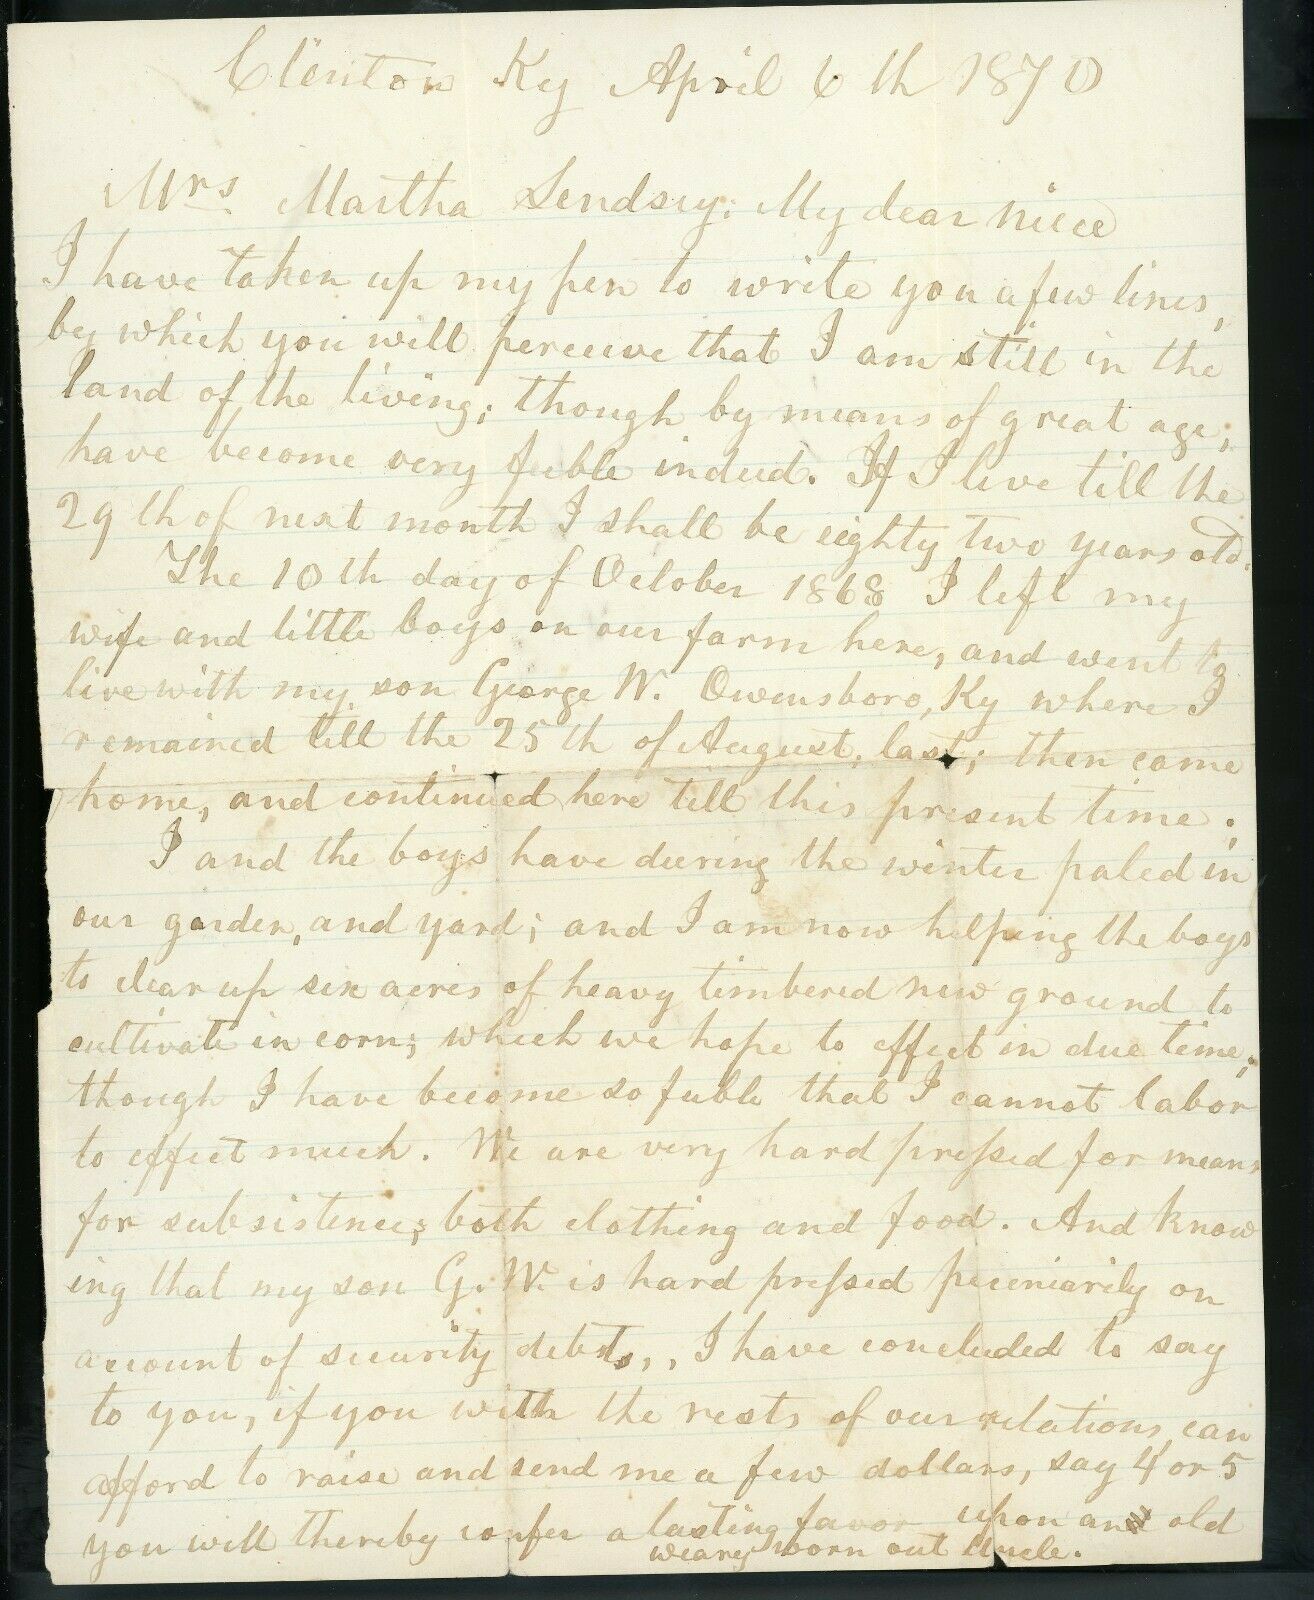 Clinton Ky April 6th 1870
Mrs Martha Lendsey: My dear niece
I have taken up my pen to write you a few lines,
by which you will perceive that I am still in the
land of the living; though by means of great age,
have become very feeble indeed. If I live till the
29th of next month I shall be eighty two years old.
The 10th day of October 1868 I left my
wife and little boys on our farm here, and went to
live with my son George W. Owensboro, Ky where I
remained till the 25th of August, last; then came
home, and continued here till this present time.
I and the boys have during the winter paled in
our garden, and yard; and I am now helping the boys
to clear up six acres of heavy timbered new ground to
cultivate in corn; which we hope to effect in due time;
though I have become so feeble that I cannot labor
to effect much. We are very hard pressed for means
for subsistence; both clothing and food. And know
ing that my son G. W. is hard pressed pecuniarily on
account of security debts,, I have concluded to say
to you, if you with the rests of our relations, can
afford to raise and send me a few dollars, say 4 or 5
you will thereby confer a lasting favor upon an old
weary worn out uncle.